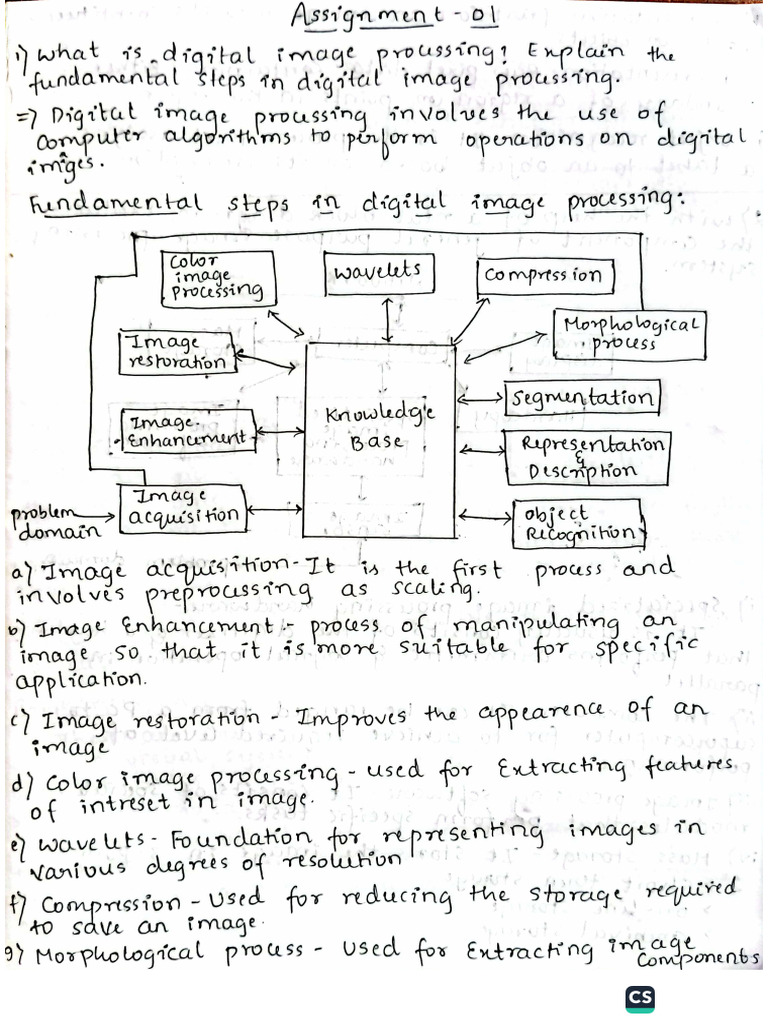 Assignment-01
1) What is digital image processing? Explain the
fundamental steps in digital image processing.
=> Digital image processing involves the use of
computer algorithms to perform operations on digital
images.
Fundamental steps in digital image processing:
Color
image
processing
Wavelets
Compression
Image
restoration
Morphological
process
Knowledge
Base
Segmentation
Image
Enhancement
Representation
&
Description
problem
domain
Image
acquisition
Object
Recognition
a) Image acquisition - It is the first process and
involves preprocessing as scaling.
b) Image Enhancement :- process of manipulating an
image so that it is more suitable for specific
application.
c) Image restoration - Improves the appearence of an
image
d) Color image processing - used for Extracting features
of intreset in image.
e) Wavelets - Foundation for representing images in
various degrees of resolution
f) Compression - Used for reducing the storage required
to save an image.
g) Morphological process - used for Extracting image
components
CS